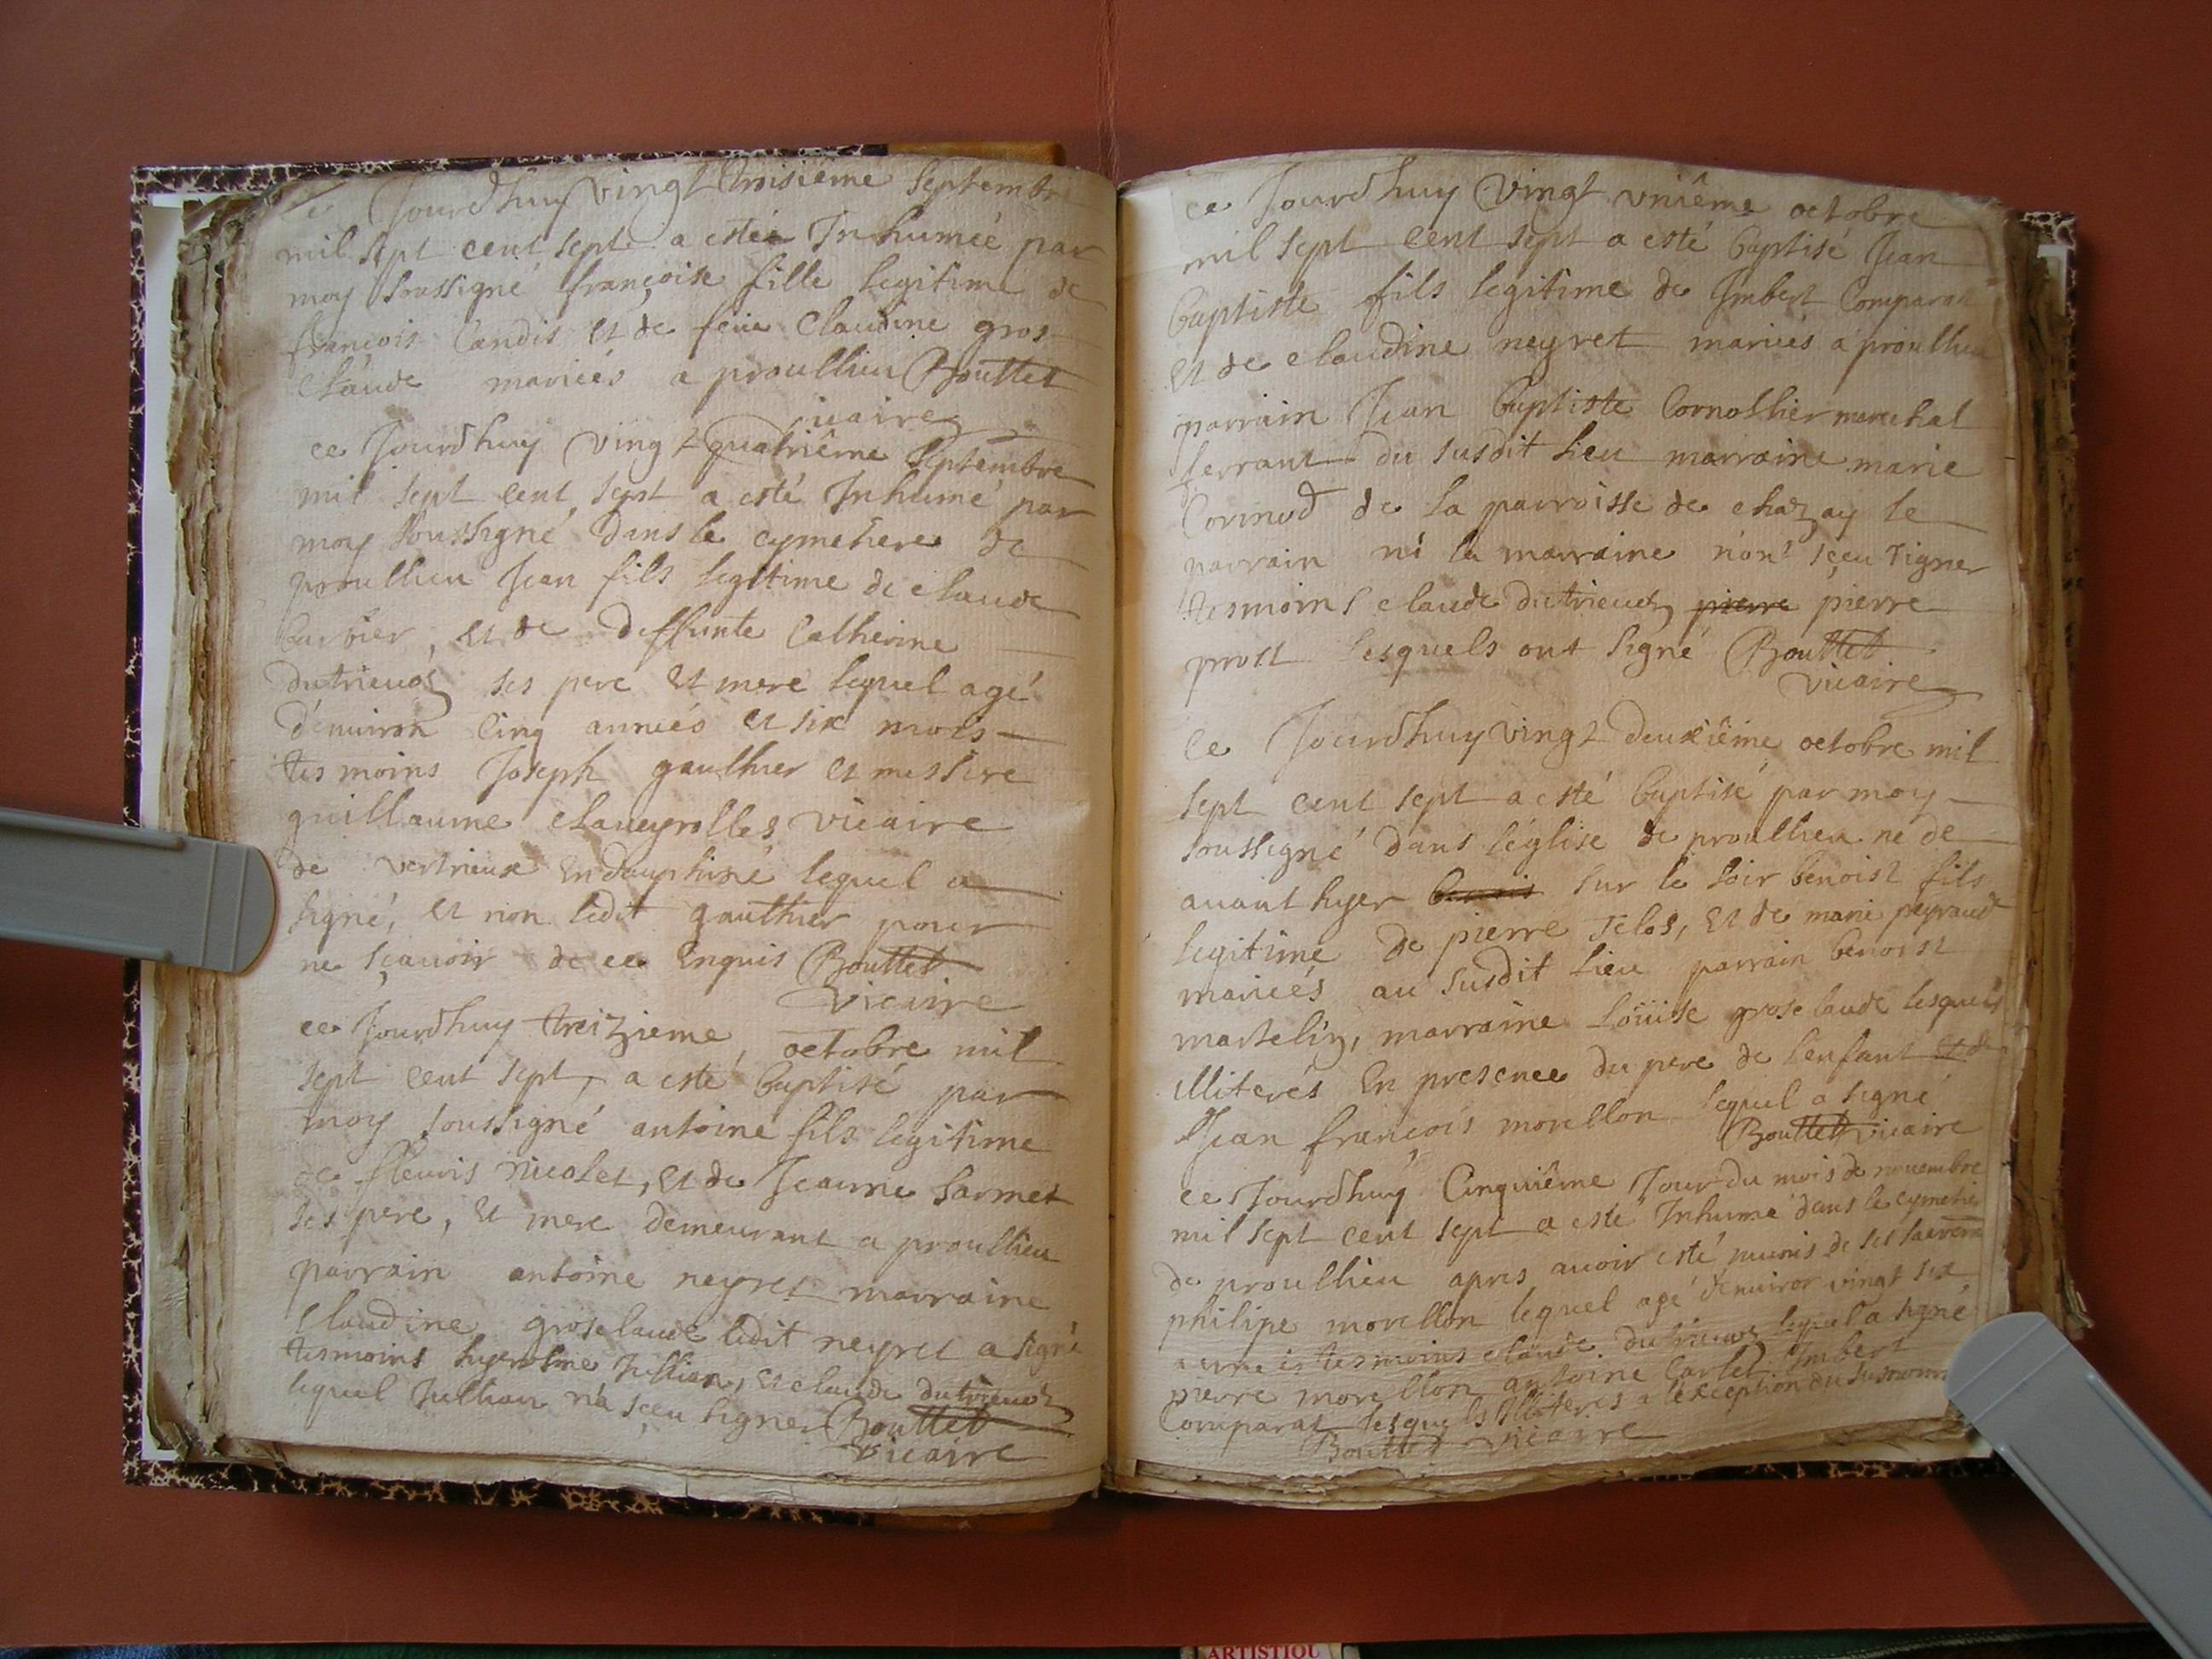 ce Jourdhuy vingt troisiême septembre
mil sept cent sept a estée Inhumée par
moy soussigné françoise fille legitime de
françois Candis et de feüe Claudine gros
claude mariés a proullieu Bouttet
vicaire
ce Jourdhuy vingt quatriême septembre
mil sept cent sept a esté Inhumé par
moy soussigné dans le cymetiere de
proullieu Jean fils legitime de claude
barbier, et de deffunte Catherine
dutrieuoz ses pere et mere lequel agé
d'enuiron Cinq années et six mois
tesmoins Joseph gauthier et messire
guillaume claueyrolles vicaire
de vertrieux En dauphiné lequel a
signé, et non ledit gauthier pour
ne sçauoir de ce Enquis Bouttet
vicaire
ce Jourdhuy treizieme, octobre mil
sept cent sept, a esté baptisé par
moy soussigné antoine fils legitime
de fleuris nicolet, et de Jeanne sarmet
ses pere, et mere demeurant a proullieu
parrain antoine neyret marraine
Claudine groseclaude ledit neyret a signé
tesmoins hyerosme Jullian, et claude dutrieuoz
lequel Jullian n'a sçeu signer Bouttet
vicaire
ce Jourdhuy vingt vniême octobre
mil sept cent sept a esté baptisé Jean
baptiste fils legitime de Imbert Comparat
et de claudine neyret mariés a proullieu
parrain Jean baptiste Cornollier marechal
ferrant du susdit lieu marraine marie
Corinod de la parroisse de chazay le
parrain ni la marraine n'ont sçeu signer
tesmoins claude dutrieuoz pierre pierre
prost lesquels ont signé Bouttet
vicaire
Ce Jourdhuy vingt deuxiême octobre mil
sept cent sept a esté baptisé par moy
soussigné dans l'église de proullieu né de
auant hyer benois sur le soir benoist fils
legitime de pierre Telos, et de marie peyraud
mariés au susdit lieu parrain benoist
martelin, marraine Loüise groseclaude lesquels
illiterés En presence du pere de l'enfant et de
Jean françois morellon lequel a signé
Bouttet vicaire
ce Jourdhuy Cinquiême Jour du mois de nouembre
mil sept cent sept a esté Inhumé dans le cymetiere
de proullieu apres auoir esté munis de ses sacrem
philipe morellon lequel agé d'enuiron vingt six
années tesmoins claude dutrieuoz lequel a signé
pierre morellon antoine Carlet, Imbert
Comparat lesquels Illiterés a l'exception du susnommé
Bouttet vicaire
ARTISTIQU